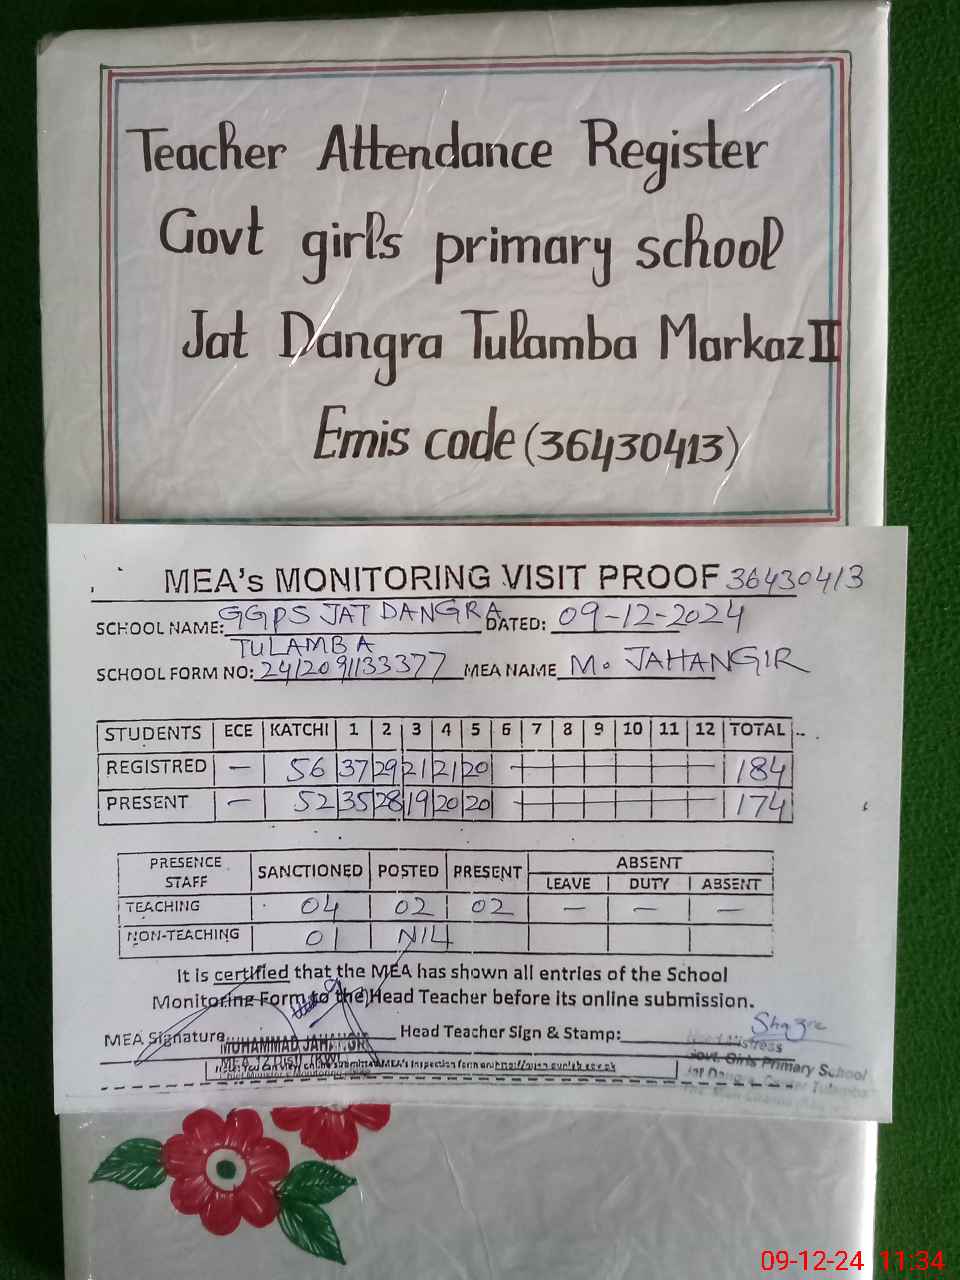 Teacher Attendance Register
Govt girls primary school
Jat Dangra Tulamba Markaz II
Emis code (36430413)
MEA's MONITORING VISIT PROOF 36430413
SCHOOL NAME: GGPS JAT DANGRA DATED: 09-12-2024
TULAMBA
SCHOOL FORM NO: 241209133377 MEA NAME M. JAHANGIR
STUDENTS ECE KATCHI 1 2 3 4 5 6 7 8 9 10 11 12 TOTAL
REGISTRED — 56 37 29 21 21 20 184
PRESENT — 52 35 28 19 20 20 174
PRESENCE STAFF SANCTIONED POSTED PRESENT ABSENT
LEAVE DUTY ABSENT
TEACHING 04 02 02 — — —
NON-TEACHING 01 NIL
It is certified that the MEA has shown all entries of the School
Monitoring Form to the Head Teacher before its online submission.
MEA Signature Head Teacher Sign & Stamp:
MUHAMMAD JAHANGIR
Govt. Girls Primary School
Tulamba
09-12-24 11:34